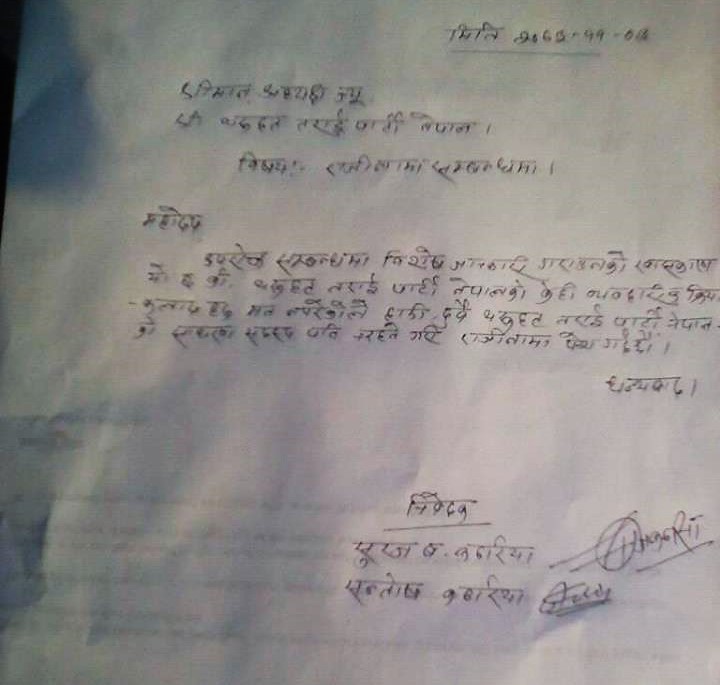 मिति २०७३-११-०४
श्रीमान् अध्यक्ष ज्यू
श्री थरुहट तराई पार्टी नेपाल ।
विषयः- राजीनामा सम्बन्धमा ।
महोदय
उपरोक्त सम्बन्धमा विशेष जानकारी गराउनको
यो छ की थरुहट तराई पार्टी नेपालको केही व्यवहारिक क्रिया
-कलाप हरु मन नपरेकोले हामी दुवै थरुहट तराई पार्टी नेपाल
को साधारण सदस्य पनि नरहने गरि राजीनामा पेश गर्दछौं ।
धन्यवाद ।
निवेदक
सुरज ब. कठरिया
सन्तोष कठरिया